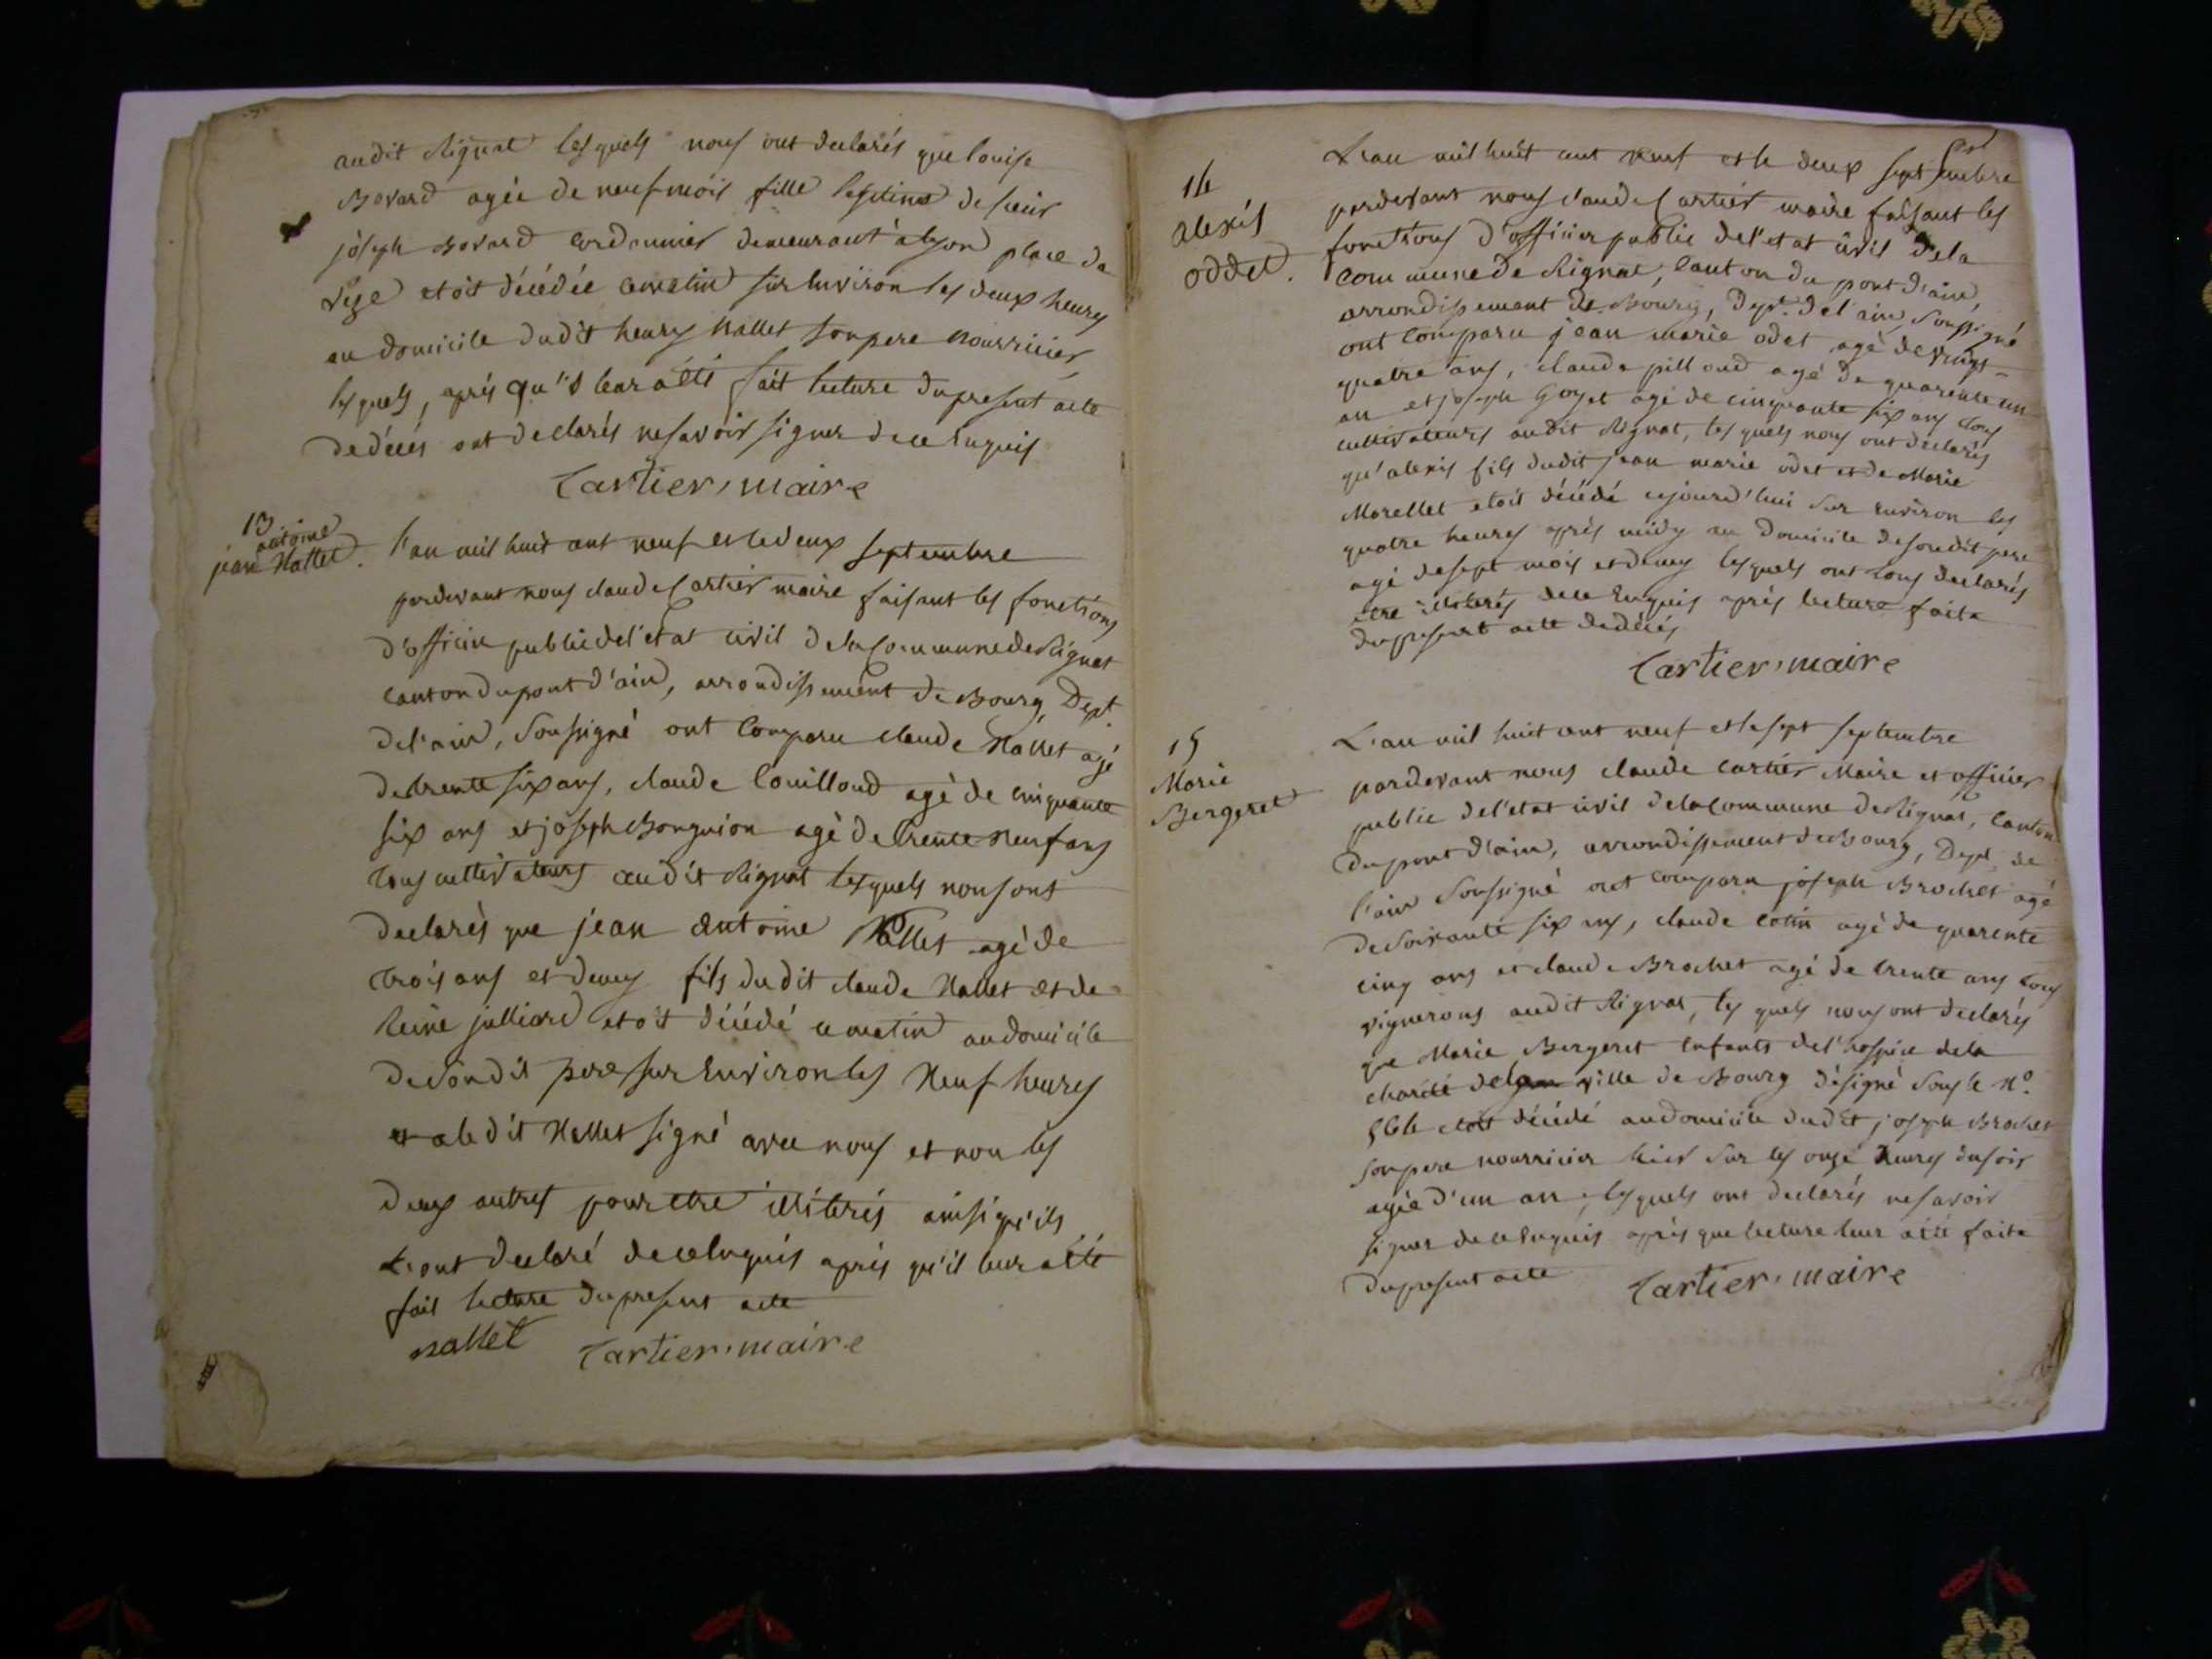 audit Rignat lesquels nous ont declarés que louise
Bovard agée de neuf mois fille legitime de sieur
joseph Bovard cordonnier demeurant a lyon place de
étoit décédée ce matin sur environ les deux heures
au domicile dudit henry Nallet son pere nourricier,
lesquels, aprés qu'il leur a été fait lecture du present acte
de décés ont declarés ne savoir signer de ce Enquis
Cartier, maire
13
antoine
jean Nallet.
l'an mil huit cent neuf et le deux septembre
pardevant nous claude Cartier maire faisant les fonctions
d'officier public de l'etat civil de la Commune de Rignat
canton du pont d'ain, arrondissement de Bourg, Dept.
de l'ain, soussigné ont comparu claude Nallet agé
de trente six ans, claude Couilloud agé de cinquante
six ans et joseph Bonguion agé de trente neuf ans
tous cultivateurs audit Rignat lesquels nous ont
declarés que jean antoine Nallet agé de
trois ans et demy fils dudit claude Nallet et de
Reine julliard étoit décédé ce matin au domicile
de sondit pere sur Environ les Neuf heures
et a ledit Nallet signé avec nous et non les
deux autres pour etre illiterés ainsi qu'ils
l'ont declaré de ce Enquis aprés qu'il leur a été
fait lecture du present acte
nallet Cartier, maire
14
alexis
oddet.
L'an mil huit cent neuf et le deux septembre
pardevant nous claude Cartier maire faisant les
fonctions d'officier public de l'etat civil de la
commune de Rignat, canton du pont d'ain,
arrondissement de Bourg, Dept. de l'ain, soussigné
ont comparu jean marie odet agé de vingt-
quatre ans, claude pilloud agé de quarente un
an et joseph Goyet agé de cinquante six ans tous
cultivateurs audit Rignat, lesquels nous ont declarés
qu'alexis fils dudit jean marie odet et de Marie
Morellet etoit décédé cejourd'hui sur environ les
quatre heures aprés midy au domicile de sondit pere
agé de sept mois et demy lesquels ont tous declarés
etre illiterés de ce Enquis aprés lecture faite
du present acte de décés
Cartier, maire
15
Marie
Bergeret
L'an mil huit cent neuf et le sept septembre
pardevant nous claude cartier Maire et officier
public de l'etat civil de la Commune de Rignat, Canton
du pont d'ain, arrondissement de Bourg, Dept. de
l'ain soussigné ont comparu joseph Brochet agé
de soixante six ans, claude cottin agé de quarente
cinq ans et claude Brochet agé de trente ans tous
vignerons audit Rignat, lesquels nous ont declarés
que Marie Bergeret enfants de l'hospice de la
charité de la ville de Bourg désigné sous le N°.
étoit décédé au domicile dudit joseph Brochet
son pere nourricier hier sur les onze heures du soir
agée d'un an, lesquels ont declarés ne savoir
signer de ce Enquis aprés que lecture leur a été faite
du present acte Cartier, maire